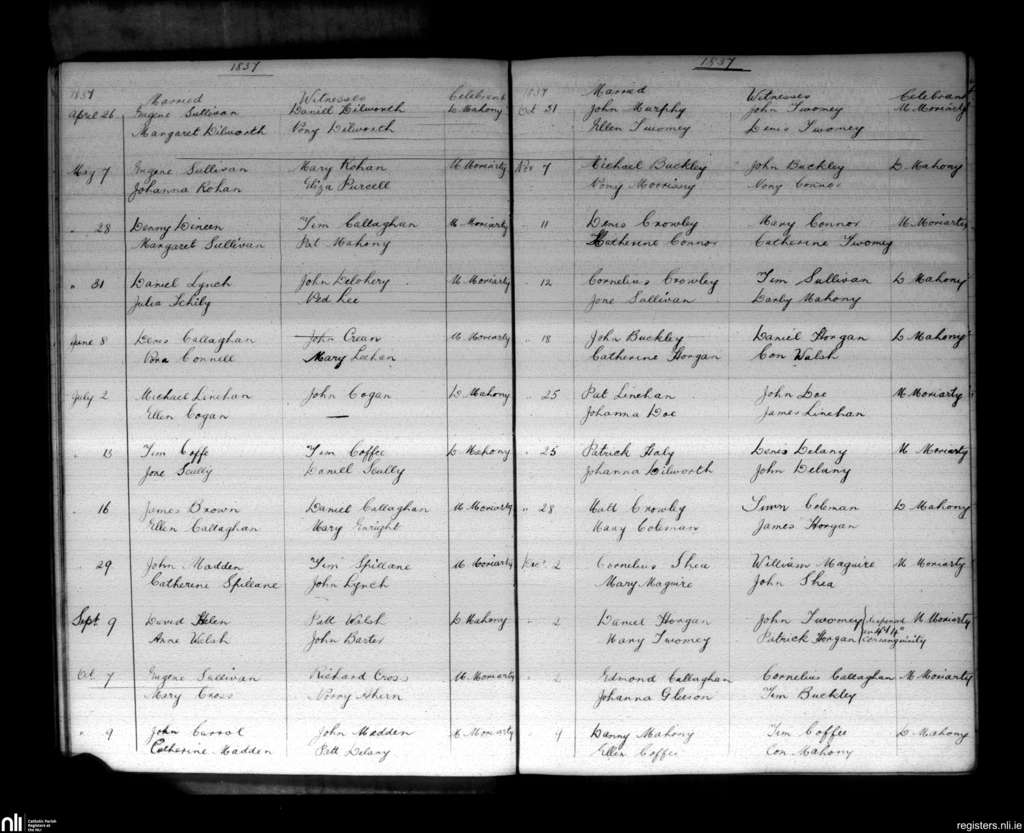 1837
1837 Married Witnesses Celebrant
April 26 Eugene Sullivan Daniel Dilworth D Mahony
Margaret Dilworth Nony Dilworth
May 7 Eugene Sullivan Mary Kohan M Moriarty
Johanna Kohan Eliza Purcell
" 28 Denny Dineen Tim Callaghan M Moriarty
Margaret Sullivan Pat Mahony
" 31 Daniel Lynch John Delohery M Moriarty
Julia Schily Ned Lee
June 8 Denis Callaghan John Crean M Moriarty
Connell Mary Leehan
July 2 Michael Linehan John Cogan D Mahony
Ellen Cogan —
" 13 Tim Coffe Tim Coffee D Mahony
Jone Scully Daniel Scully
" 16 James Brown Daniel Callaghan M Moriarty
Ellen Callaghan Mary Enright
" 29 John Madden Tim Spillane M Moriarty
Catherine Spillane John Lynch
Sept 9 David Helen Patt Walsh D Mahony
Anne Walsh John Barter
Oct 7 Eugene Sullivan Richard Cross M Moriarty
Mary Cross Norry Ahern
" 9 John Carrol John Madden M Moriarty
Catherine Madden Patt Delany
1837
1837 Married Witnesses Celebrant
Oct 31 John Murphy John Twomey M Moriarty
Ellen Twomey Denis Twomey
Nov 7 Michael Buckley John Buckley D Mahony
Nony Morrissy Nony Connor
" 11 Denis Crowley Mary Connor M Moriarty
Katherine Connor Catherine Twomey
" 12 Cornelius Crowley Tim Sullivan D Mahony
Jone Sullivan Darby Mahony
" 18 John Buckley Daniel Horgan D Mahony
Catherine Horgan Con Walsh
" 25 Pat Linehan John Doe M Moriarty
Johanna Doe James Linehan
" 25 Patrick Haly Denis Delany M Moriarty
Johanna Dilworth John Delany
" 28 Matt Crowley Simon Coleman D Mahony
Mary Coleman James Horgan
Dec 2 Cornelius Shea William Maguire M Moriarty
Mary Maguire John Shea
" 2 Daniel Horgan John Twomey dispensed M Moriarty
Mary Twomey Patrick Horgan in 4th 4o consanguinity
" 2 Edmond Callaghan Cornelius Callaghan M Moriarty
Johanna Gleeson Tim Buckley
" 4 Danny Mahony Tim Coffee D Mahony
Ellen Coffee Con Mahony
nli Catholic Parish Registers at the NLI
registers.nli.ie